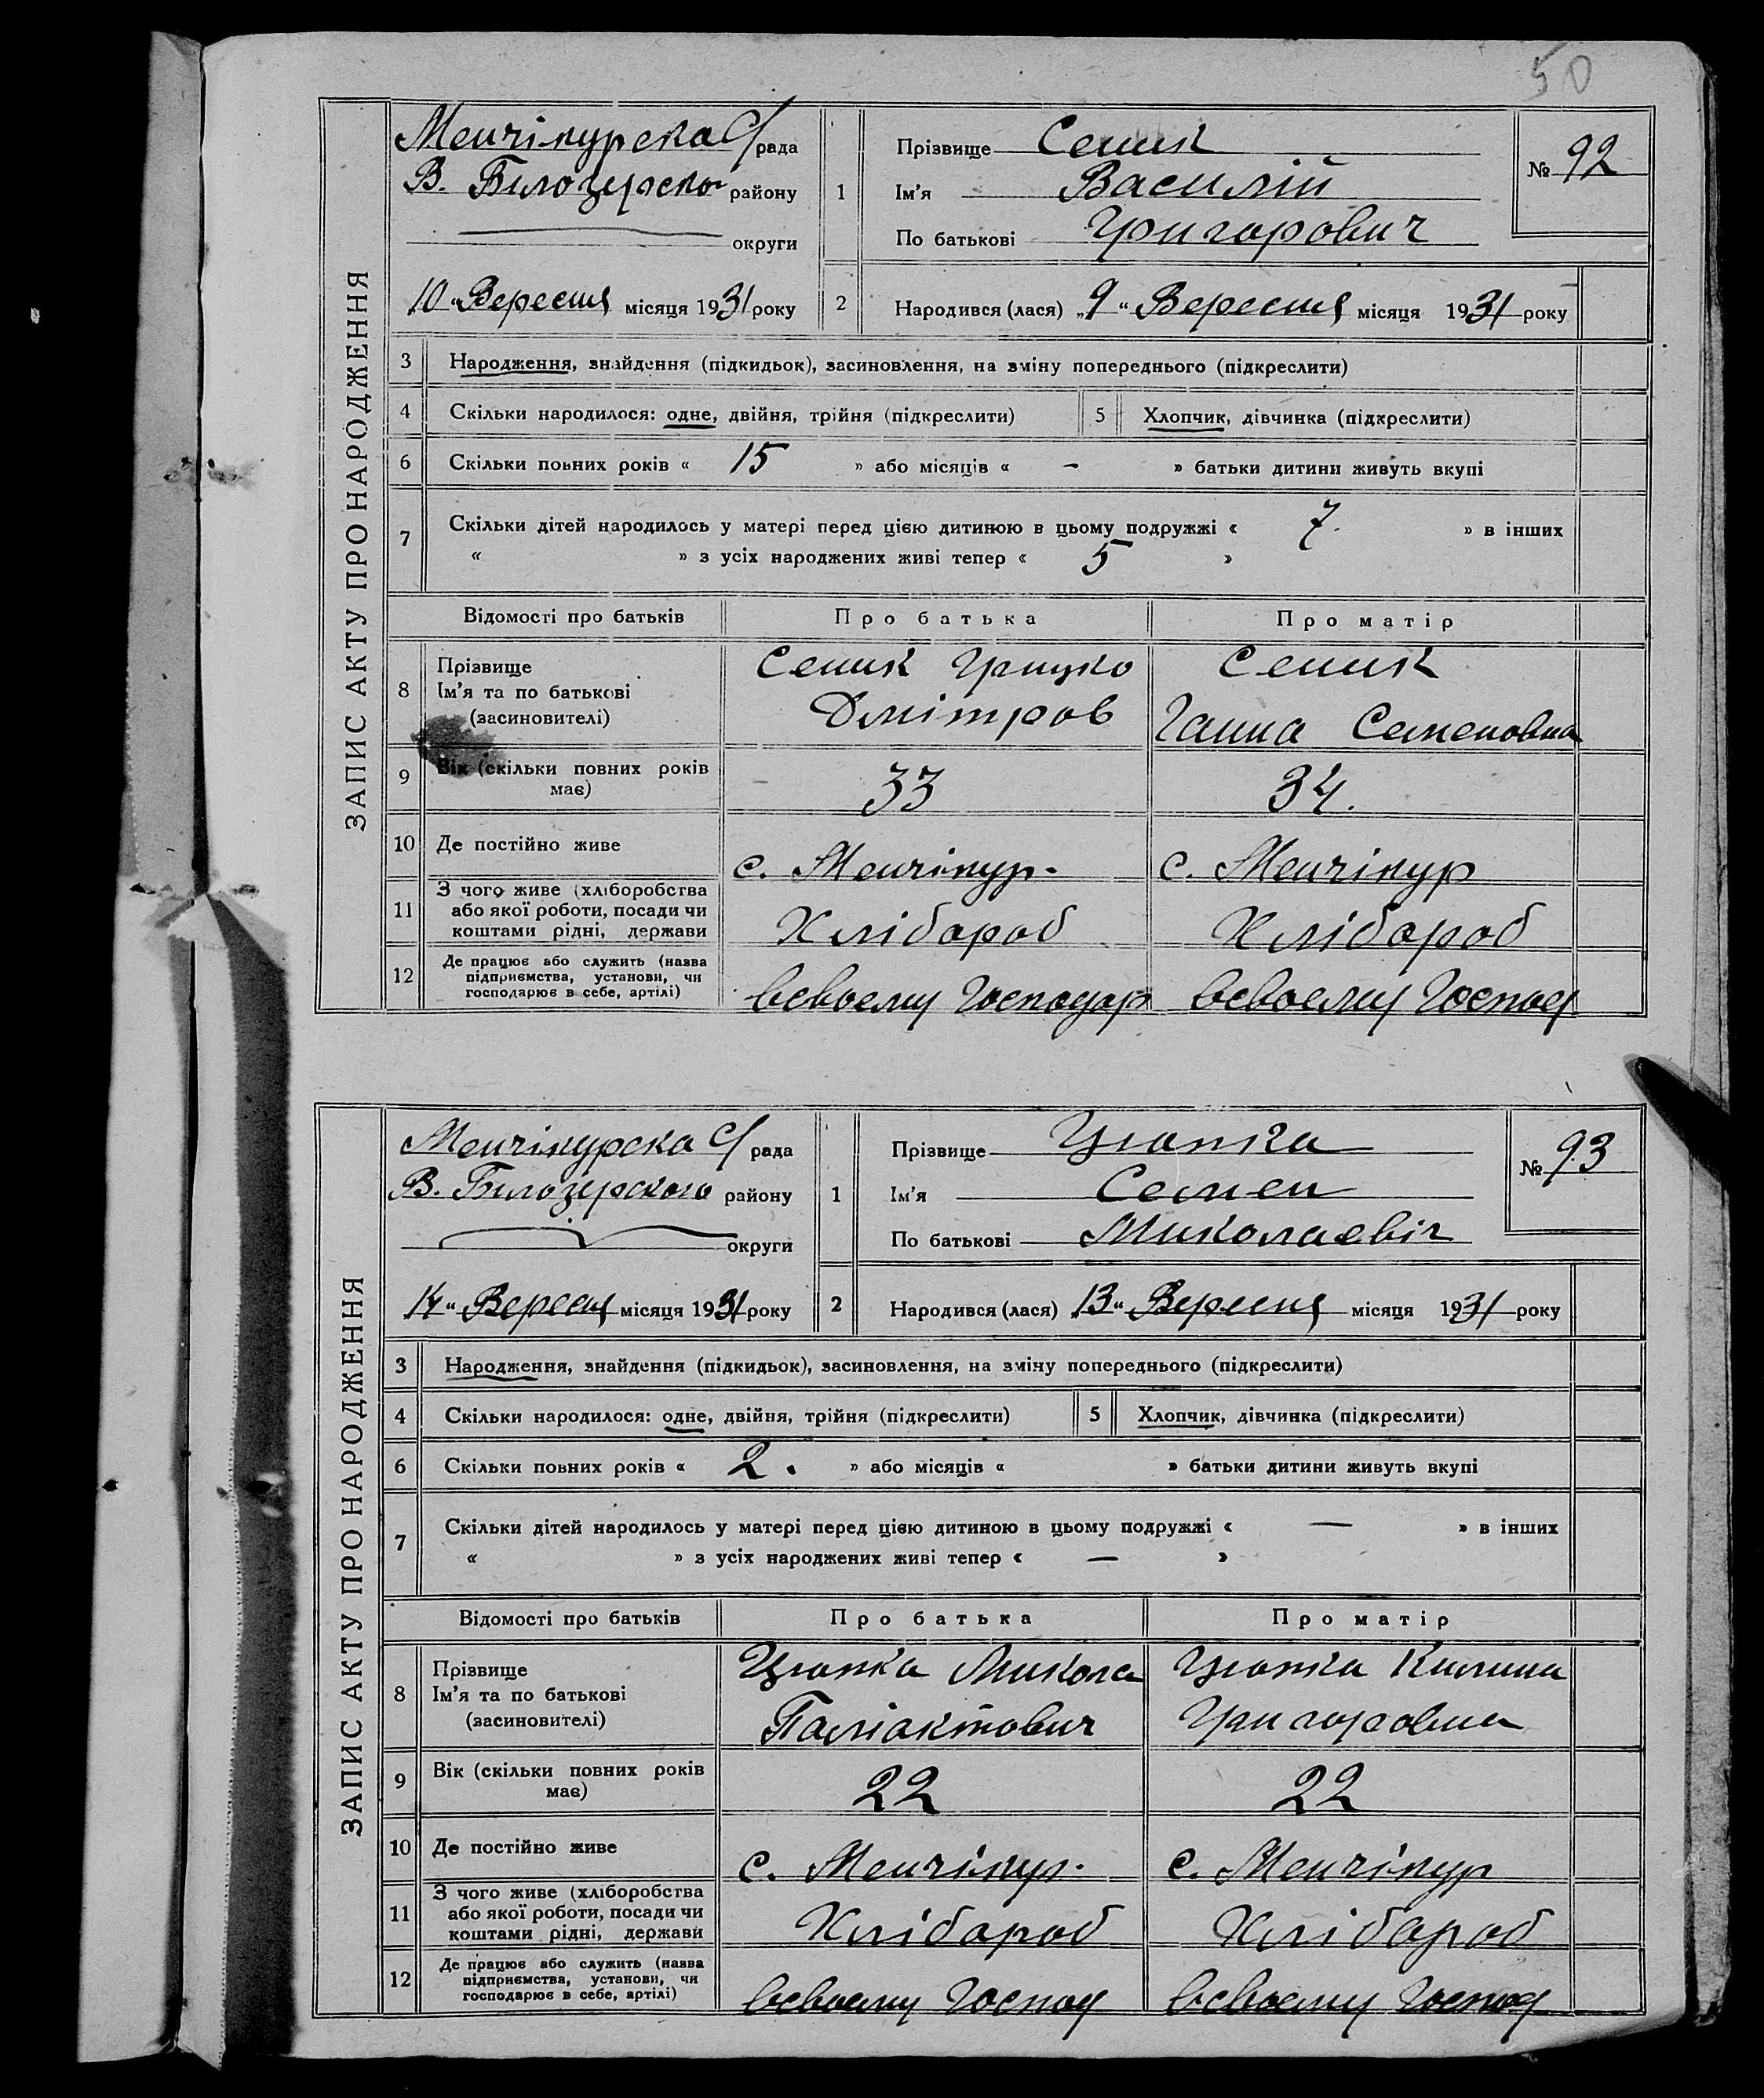 50
ЗАПИС АКТУ ПРО НАРОДЖЕННЯ
Менчікурска С/рада
В. Білозерско району
округи
10 "Вересня місяця 1931 року
1
Прізвище Сеник
Ім'я Василій
По батькові Григорович
№ 92
2
Народився (лася) „9 " Вересня місяця 1931 року
3 Народження, знайдення (підкидьок), засиновлення, на зміну попереднього (підкреслити)
4 Скільки народилося: одне, двійня, трійня (підкреслити) 5 Хлопчик, дівчинка (підкреслити)
6 Скільки повних років « 15 » або місяців « - » батьки дитини живуть вкупі
7 Скільки дітей народилось у матері перед цією дитиною в цьому подружжі « 7. » в інших
« » з усіх народжених живі тепер « 5 »
Відомості про батьків Про батька Про матір
8 Прізвище
Ім'я та по батькові
(засиновителі)
Сеник Грицко
Дмітров
Сеник
Ганна Семеновна
9 Вік (скільки повних років
має)
33 34.
10 Де постійно живе с. Менчікур. с. Менчікур
11 З чого живе (хліборобства
або якої роботи, посади чи
коштами рідні, держави
Хлібароб Хлібароб
12 Де працює або служить (назва
підприємства, установи, чи
господарює в себе, артілі)
всвоему Господар всвоему Господ
ЗАПИС АКТУ ПРО НАРОДЖЕННЯ
Менчікурска С/ рада
В. Білозерского району
округи
14 " Вересня місяця 1931 року
1
Прізвище Цюпка
Ім'я Семен
По батькові Миколаевіч
№ 93
2
Народився (лася) 13 " Вересня місяця 1931 року
3 Народження, знайдення (підкидьок), засиновлення, на зміну попереднього (підкреслити)
4 Скільки народилося: одне, двійня, трійня (підкреслити) 5 Хлопчик, дівчинка (підкреслити)
6 Скільки повних років « 2. » або місяців « » батьки дитини живуть вкупі
7 Скільки дітей народилось у матері перед цією дитиною в цьому подружжі « — » в інших
« » з усіх народжених живі тепер « — »
Відомості про батьків Про батька Про матір
8 Прізвище
Ім'я та по батькові
(засиновителі)
Цюпка Микола
Цюпка Килина
Григоровна
9 Вік (скільки повних років
має)
22 22
10 Де постійно живе с. Менчікур. с. Менчікур
11 З чого живе (хліборобства
або якої роботи, посади чи
коштами рідні, держави
Хлібароб Хлібароб
12 Де працює або служить (назва
підприємства, установи, чи
господарює в себе, артілі)
всвоему Господ всвоему Господ